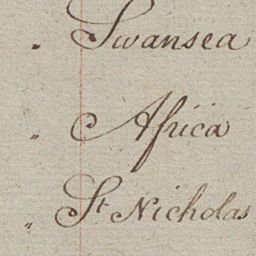 " Swansea
" Africa
" St Nicholas